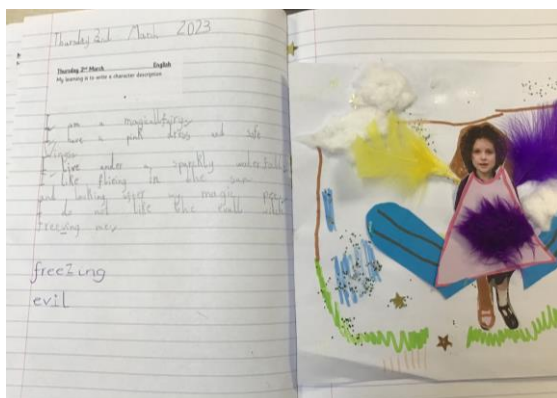 Thursday 2nd March 2023
Thursday 2nd March English
My learning is to write a character description.
I am a magicalfairy
I have a pink dress and soft
Wings
I live under a sparkly waterfall
I like fliing in the
and looking after my magic
I do not like the evil witch
freezing me
freezing
evil